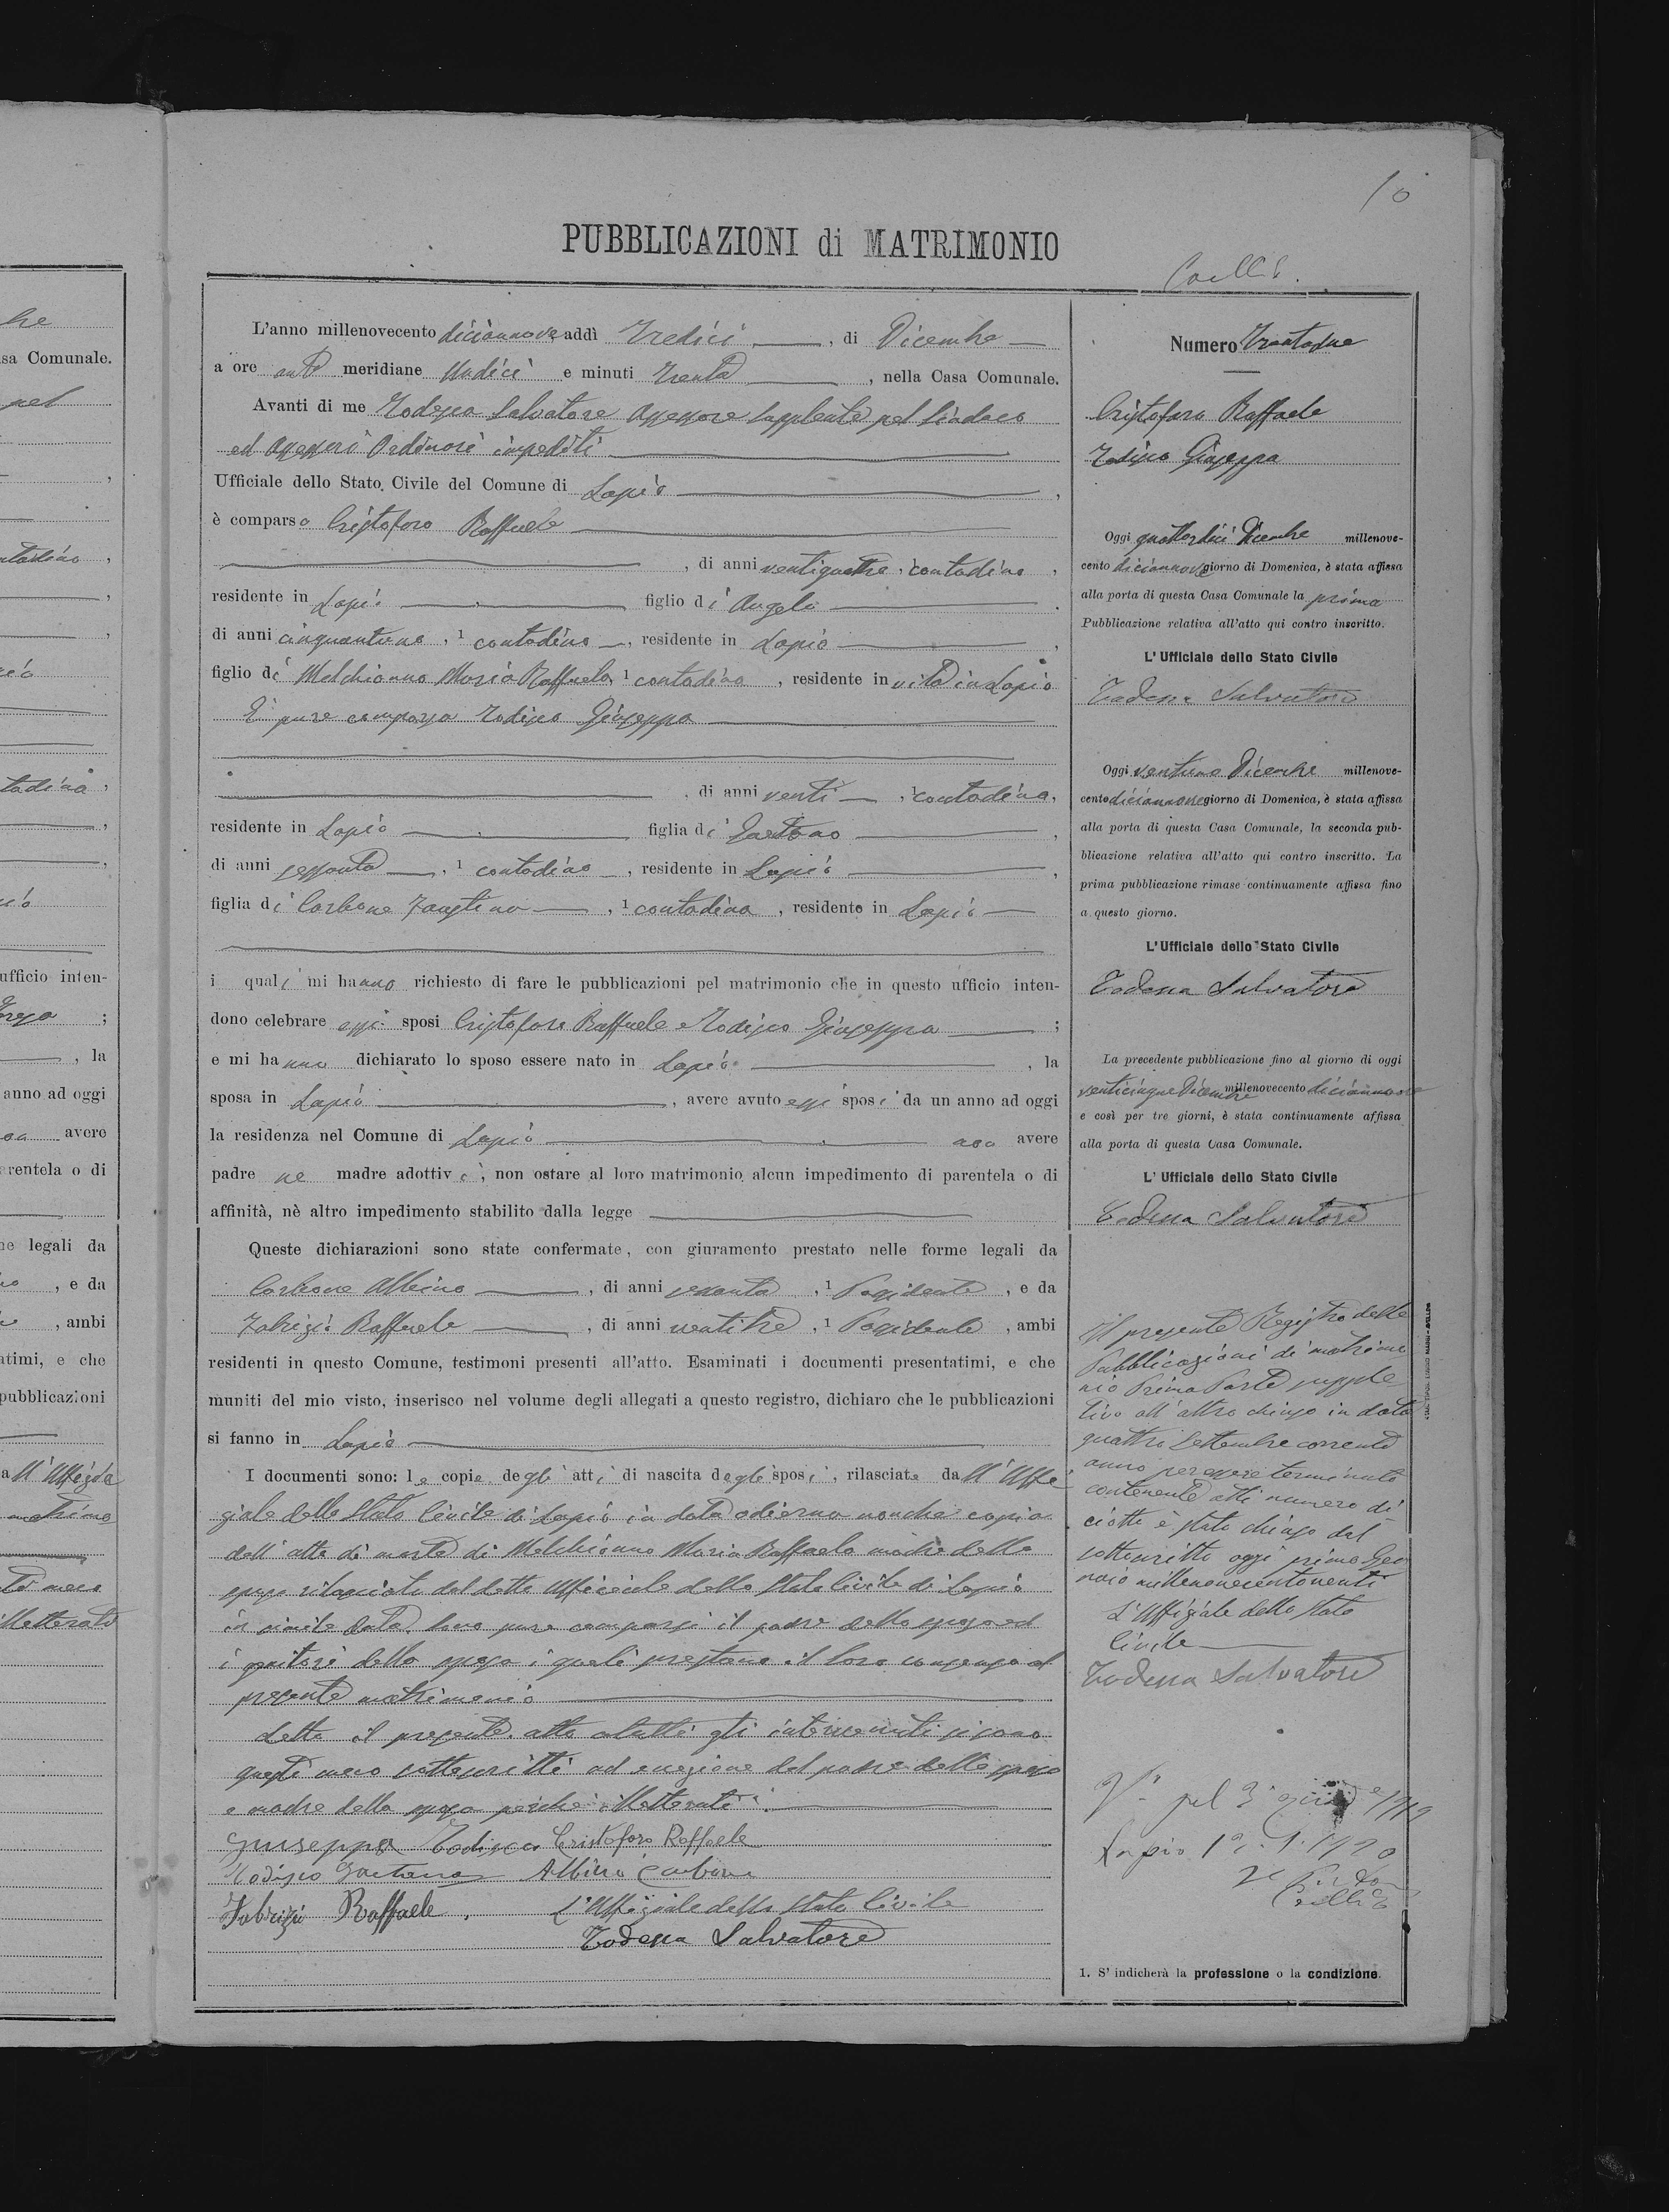 10
PUBBLICAZIONI di MATRIMONIO
L'anno millenovecento diciannove addì Tredici, di Dicembre
a ore anti meridiane Undici e minuti Trenta, nella Casa Comunale.
Avanti di me Todesca Salvatore Assessore supplente pel Sindaco
ed Assessori Ordinari impediti
Ufficiale dello Stato Civile del Comune di Lapio,
è comparso Cristoforo Raffaele
, di anni ventiquattro, contadino,
residente in Lapio figlio di Angelo
di anni cinquantuno, 1 contadino, residente in Lapio,
figlio di Melchionno Maria Raffaela, 1 contadina, residente in vita in Lapio
È pure comparsa Todisco Giuseppa
, di anni venti, contadina,
residente in Lapio figlia di Gaetano,
di anni sessanta, 1 contadino, residente in Lapio,
figlia di Carbone Faustina, 1 contadina, residente in Lapio
i quali mi hanno richiesto di fare le pubblicazioni pel matrimonio che in questo ufficio inten-
dono celebrare essi sposi Cristoforo Raffaele e Todisco Giuseppa;
e mi hanno dichiarato lo sposo essere nato in Lapio, la
sposa in Lapio, avere avuto essi sposi da un anno ad oggi
la residenza nel Comune di Lapio non avere
padre ne madre adottivi, non ostare al loro matrimonio alcun impedimento di parentela o di
affinità, nè altro impedimento stabilito dalla legge
Queste dichiarazioni sono state confermate, con giuramento prestato nelle forme legali da
Carbone Albino, di anni sessanta, 1 Possidente, e da
Fabrizio Raffaele, di anni ventitre, 1 Possidente, ambi
residenti in questo Comune, testimoni presenti all'atto. Esaminati i documenti presentatimi, e che
muniti del mio visto, inserisco nel volume degli allegati a questo registro, dichiaro che le pubblicazioni
si fanno in Lapio
I documenti sono: le copie degli atti di nascita degli sposi, rilasciate dall'Uffi
ziale dello Stato Civile di Lapio in data odierna nonche copia
dell'atto di morte di Melchionno Maria Raffaela madre dello
sposo rilasciata dal detto Ufficiale dello Stato Civile di Lapio
in simile data. Sono pure comparsi il padre dello sposo ed
i genitori della sposa i quali prestano il loro consenso al
presente matrimonio
Letto il presente atto a tutti gli intervenuti si sono
questi meco sottoscritti ad eccezione del padre dello sposo
e madre della sposa perche illetterati.
Giuseppa Todisco Cristoforo Raffaele
Todisco Gaetano Albino Carbone
Fabrizio Raffaele. L'Uffiziale dello Stato Civile
Todesca Salvatore
Numero Trentadue
Cristoforo Raffaele
Todisco Giuseppa
Oggi quattordici Dicembre millenove-
cento diciannove giorno di Domenica, è stata affissa
alla porta di questa Casa Comunale la prima
Pubblicazione relativa all'atto qui contro inscritto.
L'Ufficiale dello Stato Civile
Todesca Salvatore
Oggi ventuno Dicembre millenove-
cento diciannove giorno di Domenica, è stata affissa
alla porta di questa Casa Comunale, la seconda pub-
blicazione relativa all'atto qui contro inscritto. La
prima pubblicazione rimase continuamente affissa fino
a questo giorno.
L'Ufficiale dello Stato Civile
Todesca Salvatore
La precedente pubblicazione fino al giorno di oggi
venticinque Dicembre millenovecento diciannove
e così per tre giorni, è stata continuamente affissa
alla porta di questa Casa Comunale.
L'Ufficiale dello Stato Civile
Todesca Salvatore
Il presente Registro delle
Pubblicazioni di matrimo
nio Prima Parte supple
tivo all'altro chiuso in data
quattro Settembre corrente
anno per essere terminato
contenente atti numero di
ciotto è stato chiuso dal
sottoscritto oggi primo Gen
naio millenovecentoventi
L'Uffiziale dello Stato
Civile
Todesca Salvatore
Lapio 1920
1. S'indicherà la professione o la condizione.
he
sa Comunale.
ufficio inten-
; 
, la
anno ad oggi
avere
arentela o di
ne legali da
, e da
, ambi
atimi, e che
pubblicazioni